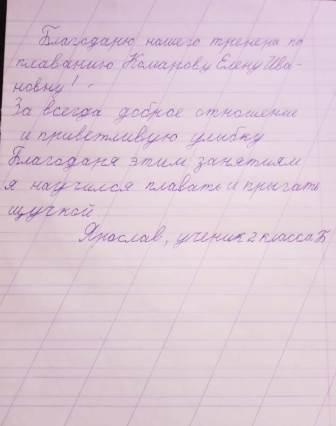 Благодарю нашего тренера по
плаванию Комарову Елену Ива-
новну!
За всегда доброе отношение
и приветливую улыбку
Благодаря этим занятиям
я научился плавать и прыгать
щучкой
Ярослав, ученик 2 класса Б